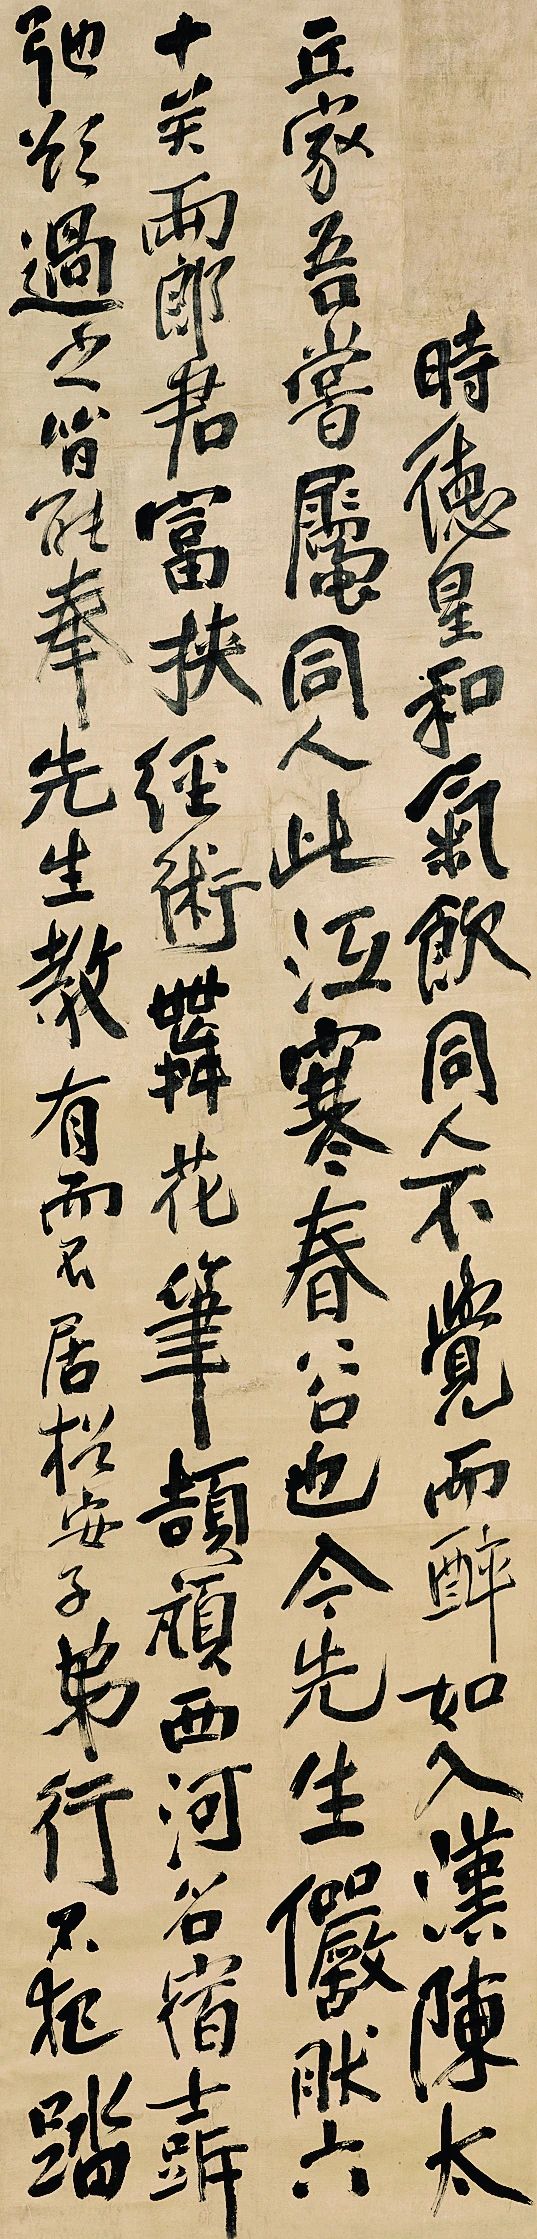 時德星和氣飲同人不覺而醉如入漢陳太
丘家吾嘗屬同人此沍寒春谷也今先生儼然六
十矣兩郎君富挾經術舞花筆頡頏西河名宿
弛欲過之皆能奉先生教有而不居松安子弟行不犯蹈